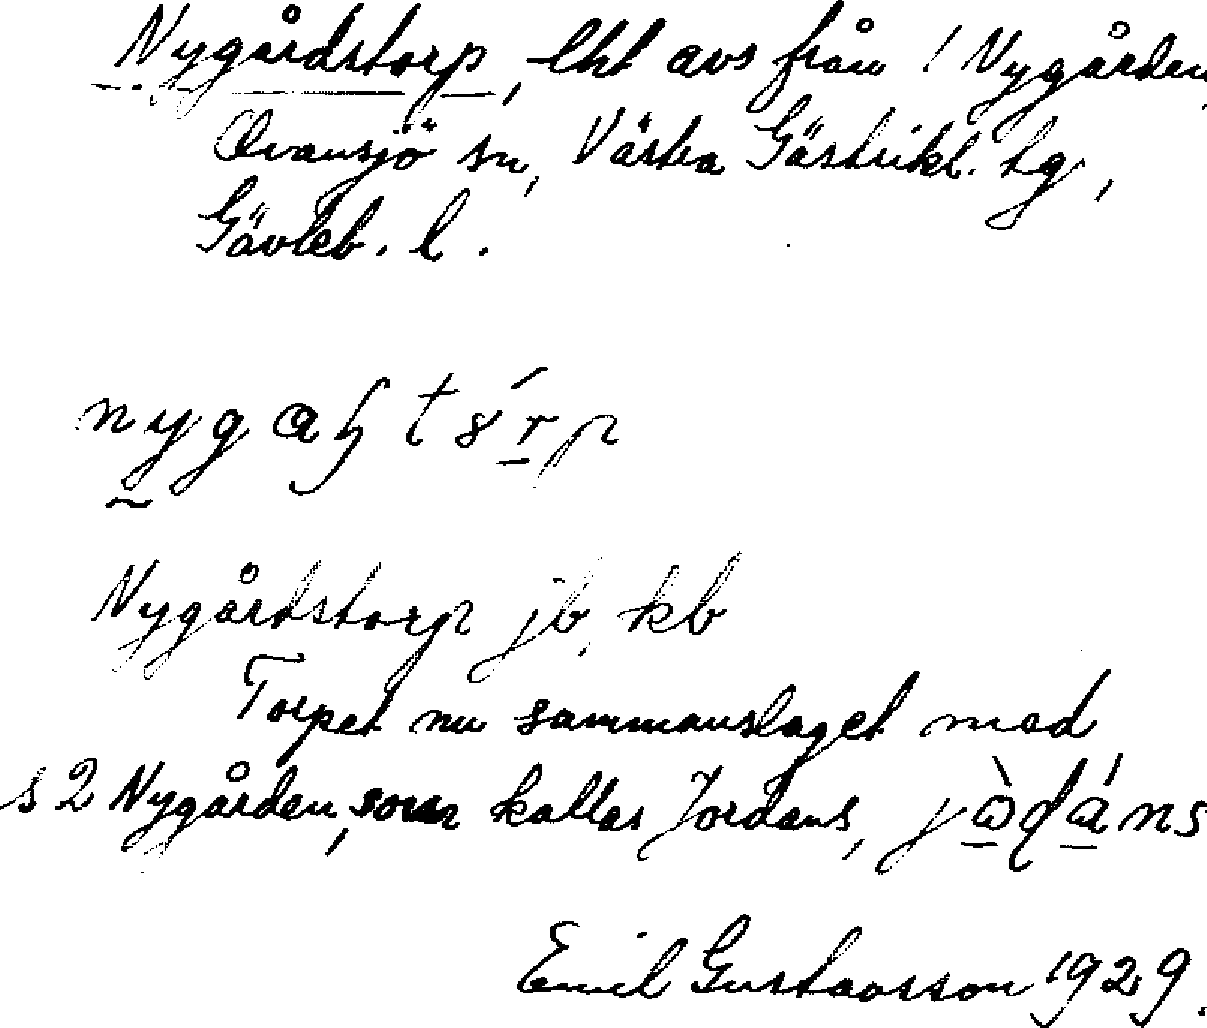 Nygårdstorp, lht avs från 1 Nygården,
Ovansjö sn, Västra Gästrikl. tg,
Gävleb. l.
Nygårdstorp jb, kb
Torpet nu sammanslaget med
s 2 Nygården, som kallas Jordans,
Emil Gustavsson 1929.